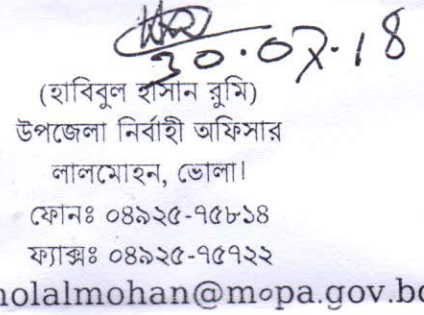 30.07.18
(হাবিবুল হাসান রুমি)
উপজেলা নির্বাহী অফিসার
লালমোহন, ভোলা।
ফোনঃ ০৪৯২৫-৭৫৮১৪
ফ্যাক্সঃ ০৪৯২৫-৭৫৭২২
nolalmohan@mopa.gov.bd